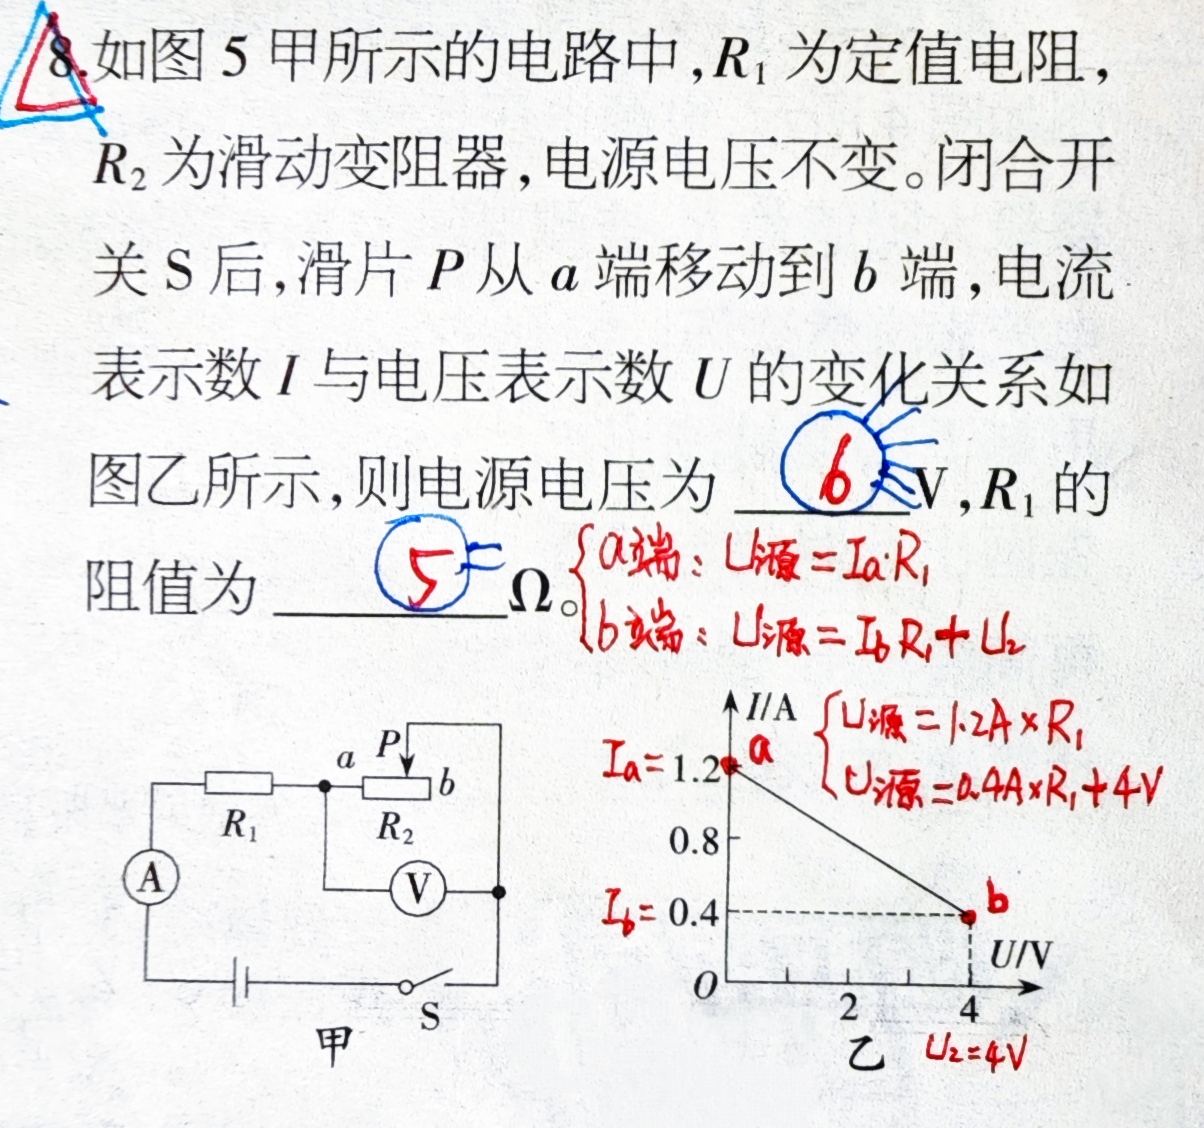 8.如图 5 甲所示的电路中,R₁ 为定值电阻,
R₂ 为滑动变阻器,电源电压不变。闭合开
关 S 后,滑片 P 从 a 端移动到 b 端,电流
表示数 I 与电压表示数 U 的变化关系如
图乙所示,则电源电压为 6 V,R₁ 的
阻值为 5 Ω。
a端:U源=Ia·R₁
b端:U源=IbR₁+U₂
a P b
R₁ R₂
A V
S
甲
I/A
U源=1.2A×R₁
U源=0.4A×R₁+4V
Ia=1.2 a
0.8
Ib=0.4 b
U/V
O 2 4
乙 U₂=4V